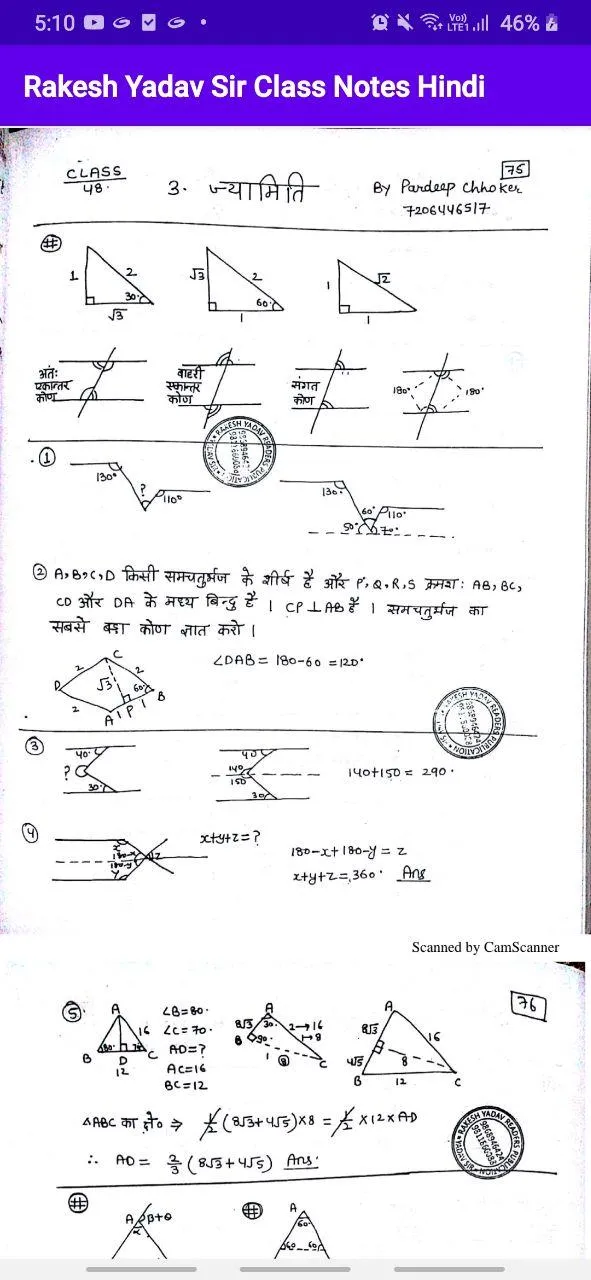 5:10
Vo)) LTE1 46%
Rakesh Yadav Sir Class Notes Hindi
CLASS 48.
75
3. ज्यामिति
By Pardeep Chhoker
7206446517
#
1 2 30° √3
√3 2 60° 1
1 √2 1
अंतः एकान्तर कोण
बाहरी एकान्तर कोण
संगत कोण
180° 180°
① 130° ? 110°
130° 60° 110° 50° 70°
② A,B,C,D किसी समचतुर्भुज के शीर्ष है और P,Q,R,S क्रमशः AB, BC,
CD और DA के मध्य बिन्दु है । CP⊥AB है । समचतुर्भुज का
सबसे बड़ा कोण ज्ञात करो ।
C 2 2 D √3 60° B 2 A 1 P 1
∠DAB = 180-60 = 120°
③ 40° ? 30°
40 140 150 30
140+150 = 290°
④ x 180-x 180-y y z
x+y+z=?
180-x+180-y = z
x+y+z=360° Ans
Scanned by CamScanner
76
⑤ A 16 80° 70° B D C 12
∠B=80°
∠C=70°
AD=?
AC=16
BC=12
A 8√3 30° 2→16 1→8 B 90° 1 8 C
A 8√3 16 4√5 8 B 12 C
△ABC का क्षे० ⇒ 1/2 (8√3+4√5)×8 = 1/2 ×12×AD
∴ AD = 2/3 (8√3+4√5) Ans:
# A β+θ α
# A 60° 60 60°
RAKESH YADAV READERS PUBLICATION